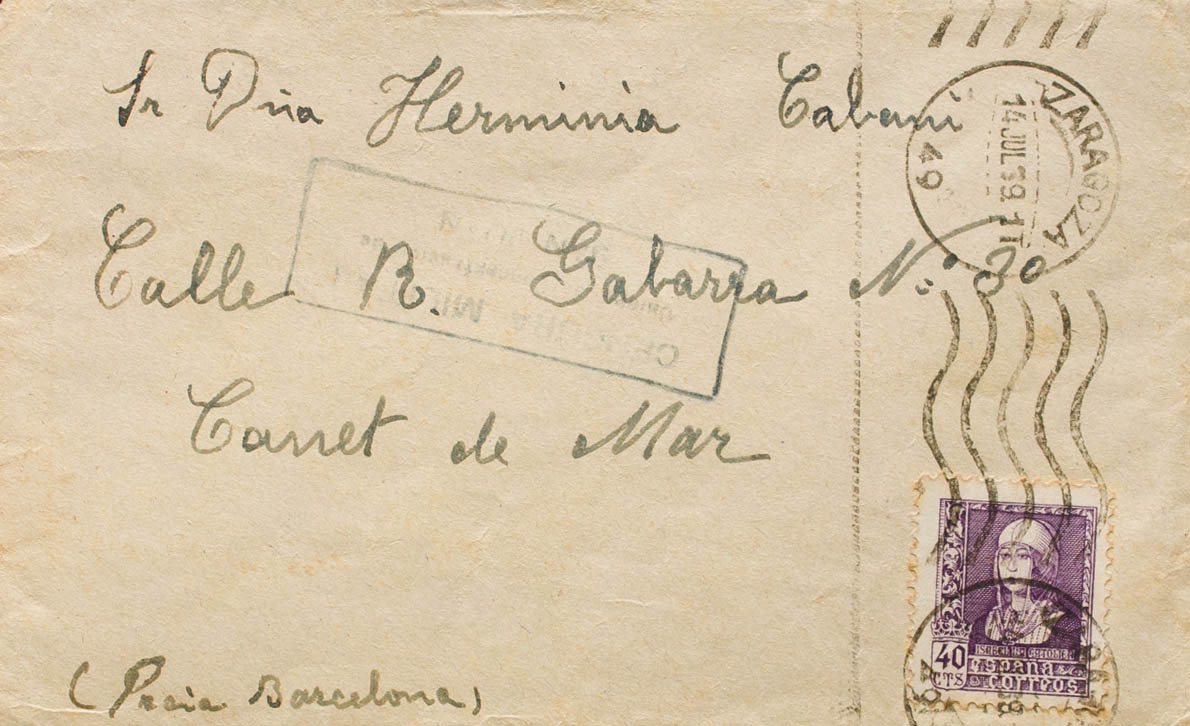 Sr Dña Herminia Cabani
Calle R. Gabarra Nº 30
Canet de Mar
(Provia Barcelona)
ZARAGOZA
14 JUL 39. 1T
49
CENSURA MILITAR
ISABEL LA CATOLICA
40 CTS
españa
correos
49